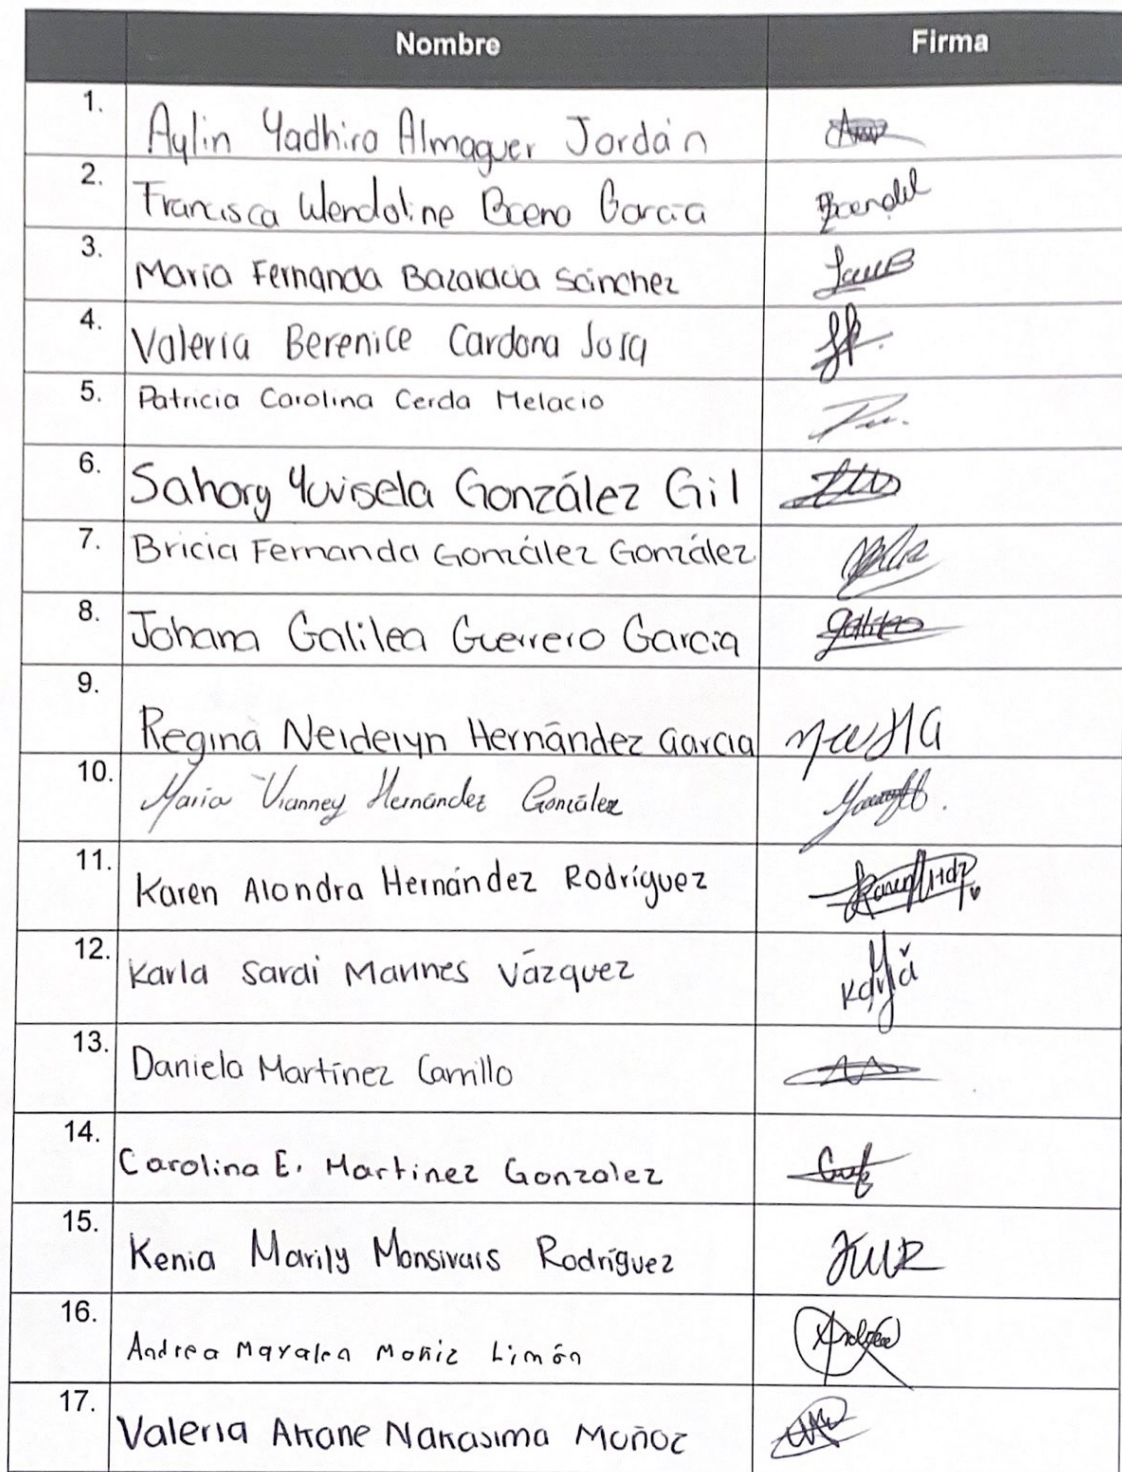 Nombre Firma
1. Aylin Yadhira Almaguer Jordán
2. Francisca Wendoline Bceno Garcia Bcendel
3. María Fernanda Bazaldua Sánchez
4. Valeria Berenice Cardona Sosa
5. Patricia Carolina Cerda Melacio
6. Sahory Yuvisela González Gil
7. Bricia Fernanda González González
8. Johana Galilea Guerrero Garcia Galilea
9. Regina Neidelyn Hernández Garcia
10. Maria Vianney Hernández González
11. Karen Alondra Hernández Rodríguez KarenHdz
12. Karla Sarai Marines Vázquez Karla
13. Daniela Martínez Carrillo
14. Carolina E. Martinez Gonzalez
15. Kenia Marily Monsivais Rodríguez
16. Andrea Mayalen Moñiz Limón Andrea
17. Valeria Akane Nakasima Muñoz